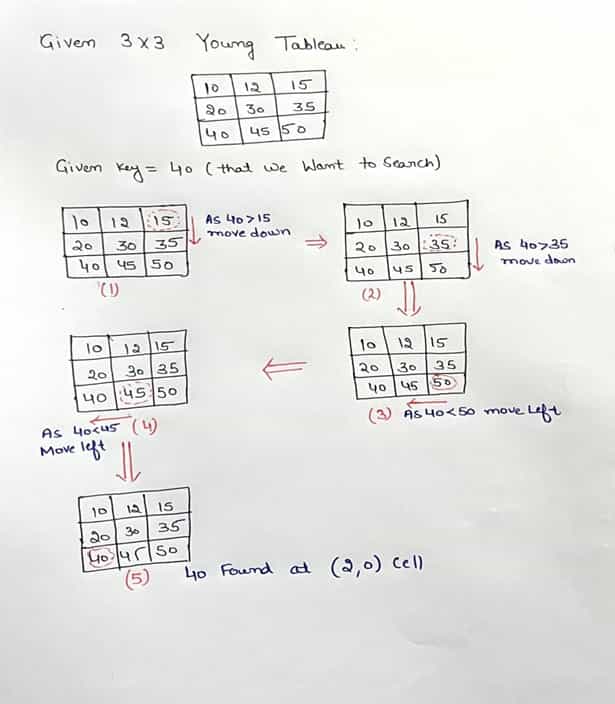 Given 3x3 Young Tableau:
10 12 15
20 30 35
40 45 50
Given key = 40 (that we want to search)
10 12 15
20 30 35
40 45 50
(1)
As 40>15
move down
10 12 15
20 30 35
40 45 50
(2)
As 40>35
move down
10 12 15
20 30 35
40 45 50
(3) As 40<50 move left
10 12 15
20 30 35
40 45 50
As 40<45 (4)
Move left
10 12 15
20 30 35
40 45 50
(5) 40 Found at (2,0) cell